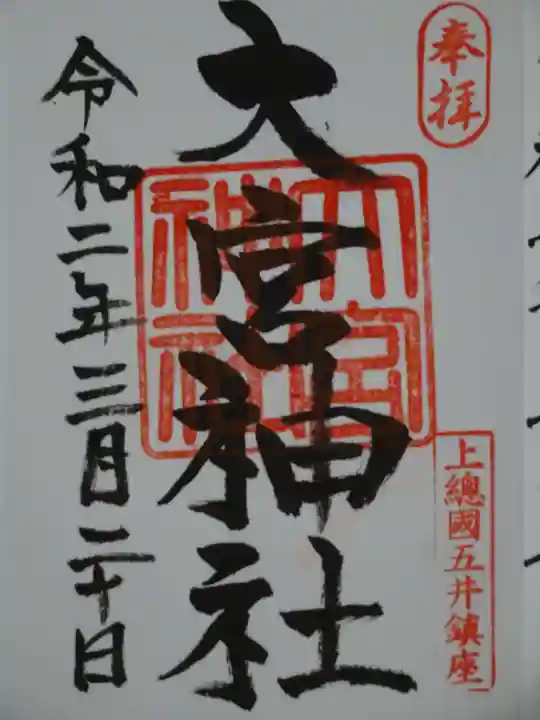 奉拝
上總國五井鎮座
大宮神社
大宮神社
令和二年三月二十日